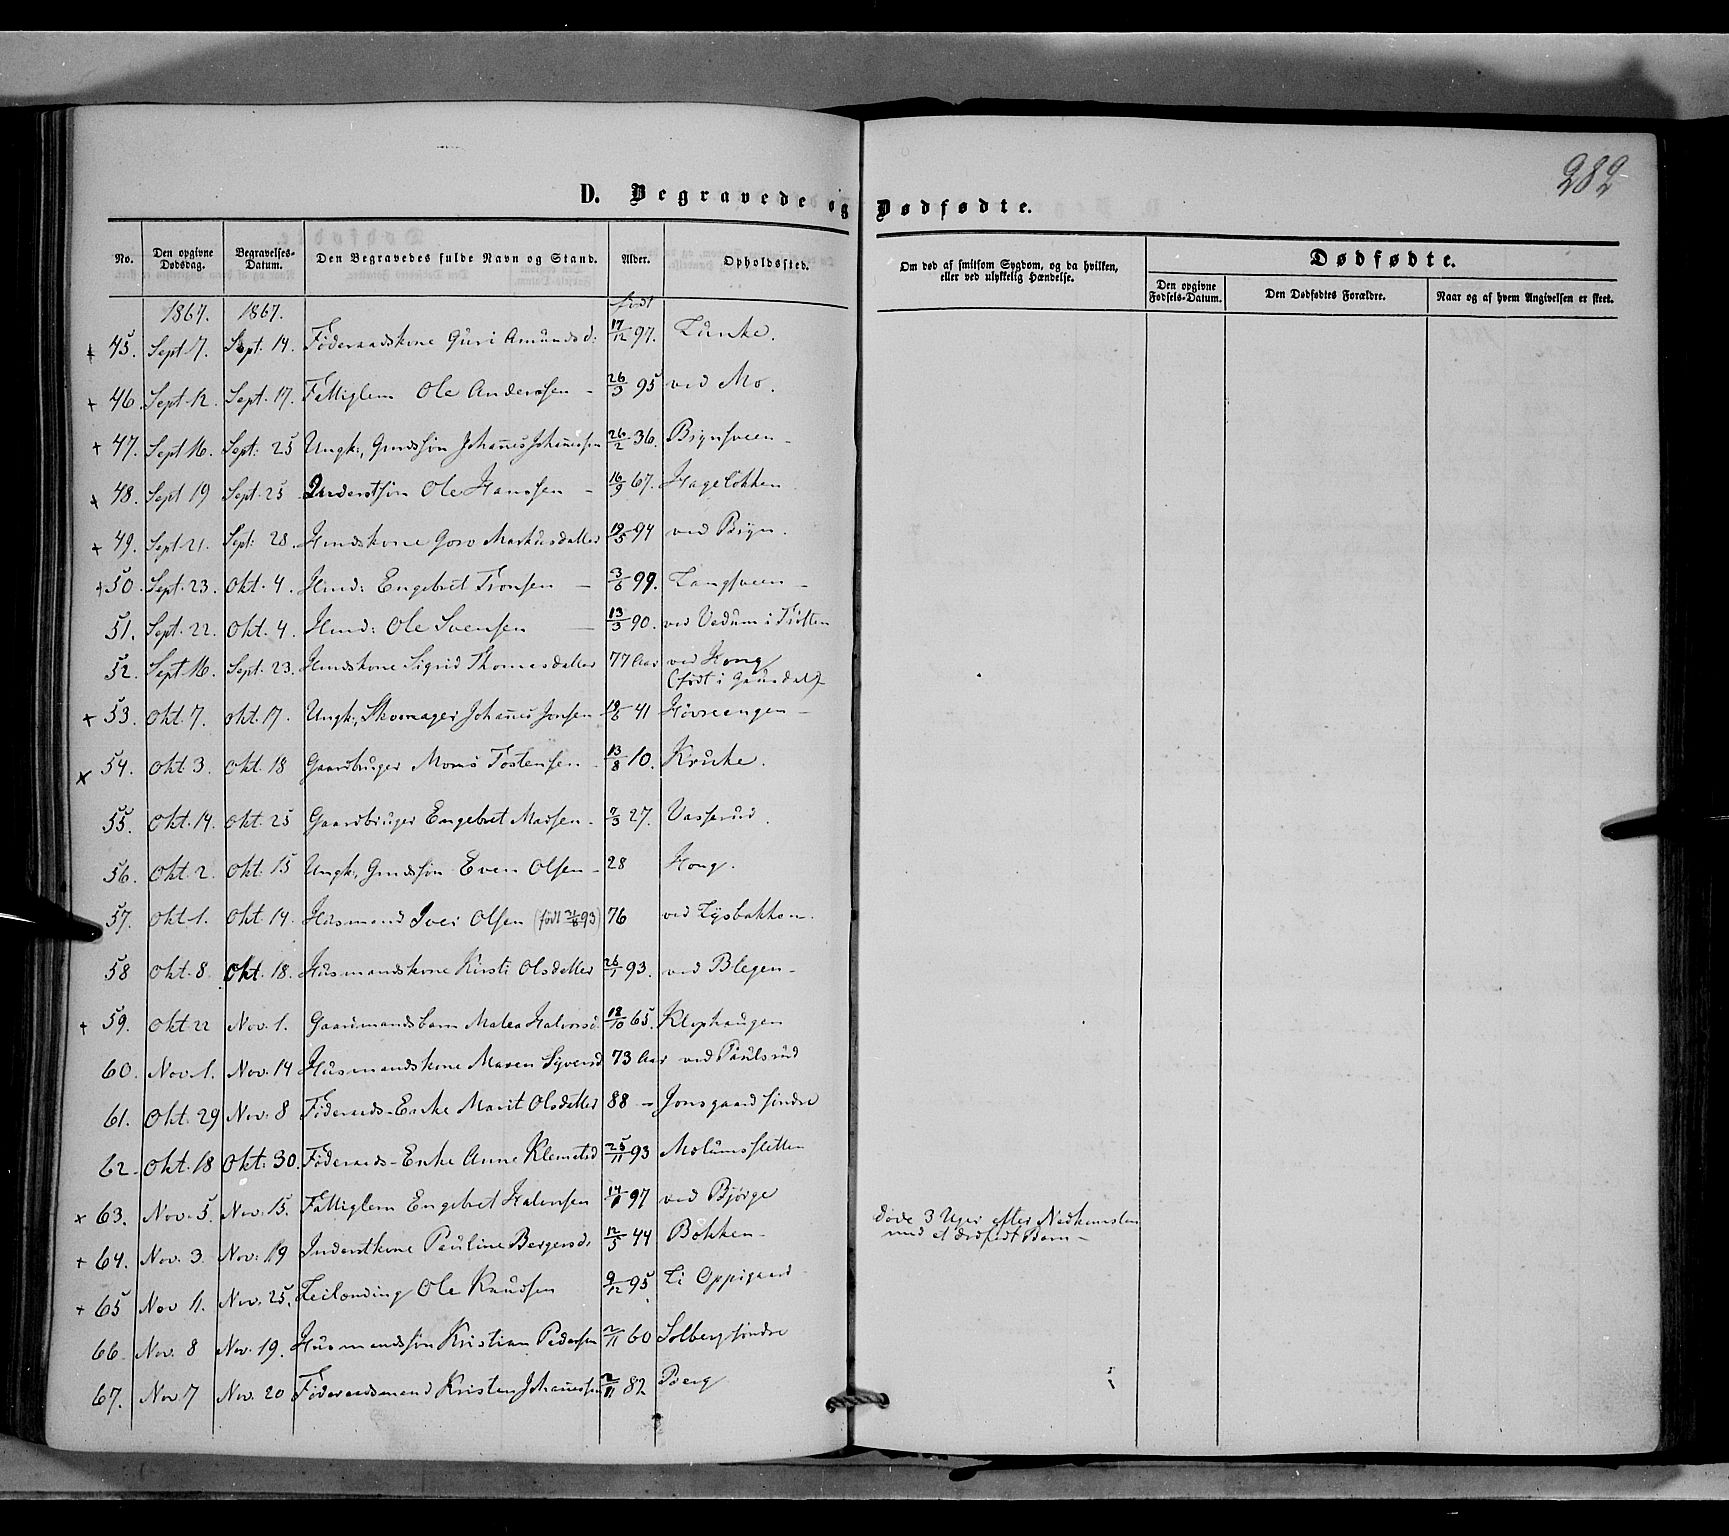 282
D. Begravede og Dødfødte.
No. | Den opgivne Dødsdag. | Begravelses-Datum. | Den Begravedes fulde Navn og Stand. | Alder. | Opholdssted. | Om død af smitsom Sygdom, og da hvilken, eller ved ulykkelig Hændelse. | Dødfødte.
Den opgivne Fødsels-Datum. | Den Dødfødtes Forældre. | Naar og af hvem Angivelsen er skeet.
1867. | 1867. | født
+ 45. | Sept 7. | Sept. 14. | Föderaadskone Guri Amundsd: | 17/12 97. | Lunke.
+ 46 | Sept. 12. | Sept. 17. | Fattiglem Ole Anderssen - | 26/3 95 | ved Mo.
+ 47. | Sept 16. | Sept: 25 | Ungk:, Gmdssön Johañes Johañessen | 26/2 36. | Bignsveen -
+ 48. | Sept 19 | Sept. 25 | Inderstsön Ole Hanssen - | 16/9 67. | Hagelökken
+ 49. | Sept 21. | Sept: 28. | Hmdskone Goro Markusdatter | 19/5 94 | ved Bign.
+ 50. | Sept. 23. | Okt. 4. | Hmd: Engebret Tronsen - | 3/6 99. | Langsveen -
51. | Sept. 22. | Okt. 4. | Hmd: Ole Svensen - | 13/3 90. | ved Vedum i Tretten
52. | Sept 16. | Sept. 23. | Hmdskone Sigrid Thomasdatter | 77 Aar | ved Hong (født i Gausdal)
+ 53. | Okt. 7. | Okt. 17. | Ungk:, Skomager Johañes Jonsen | 19/6 41 | Hövreengen -
x 54. | Okt. 3. | Okt. 18 | Gaardbruger Mons Tostensen | 13/8 10. | Kruke.
55. | Okt. 14. | Okt. 25 | Gaardbruger Engebret Madsen - | 7/3 27. | Vasserud.
56. | Okt. 2. | Okt. 15 | Ungk:, Gmdssön Even Olsen - | 28 | Hong.
57. | Okt. 1. | Okt. 14. | Husmand Iver Olsen (født 93) | 76 | ved Lysbakken.
58 | Okt. 8. | Okt. 18. | Husmandskone Kirsti Olsdatter | 26/1 93. | ved Blegen -
+ 59. | Okt 22 | Nov. 1. | Gaardmandsbarn Malea Halvorsd. | 18/10 65. | Klophaugen
60. | Nov. 1. | Nov. 14 | Husmandskone Maren Syversd | 73 Aar | ved Paulsrud
61. | Okt. 29 | Nov. 8 | Föderaads-Enke Marit Olsdatter | 88 - | Jonsgaard søndre
62. | Okt. 18 | Okt. 30. | Föderaads-Enke Anne Klemetsd | 25/11 93 | Molumsletten
x 63. | Nov. 5. | Nov. 15. | Fattiglem Engebret Halvorsen | 97 | ved Bjørge
+ 64. | Nov. 3. | Nov. 19 | Inderstkone Pauline Bergersd: | 12/5 44 | Bökken - | döde 3 Uger efter Nedkomsten
med et dødfødt Barn -
+ 65 | Nov 11. | Nov. 25. | Leilænding Ole Knudsen | 9/12 95. | Li Oppigaard
66. | Nov. 8 | Nov. 19. | Husmandssön Kristian Pedersen | 2/11 60 | Solberg søndre
67. | Nov 7 | Nov. 20 | Föderaadsmand Kristen Johañessen | 2/11 82 | Berg